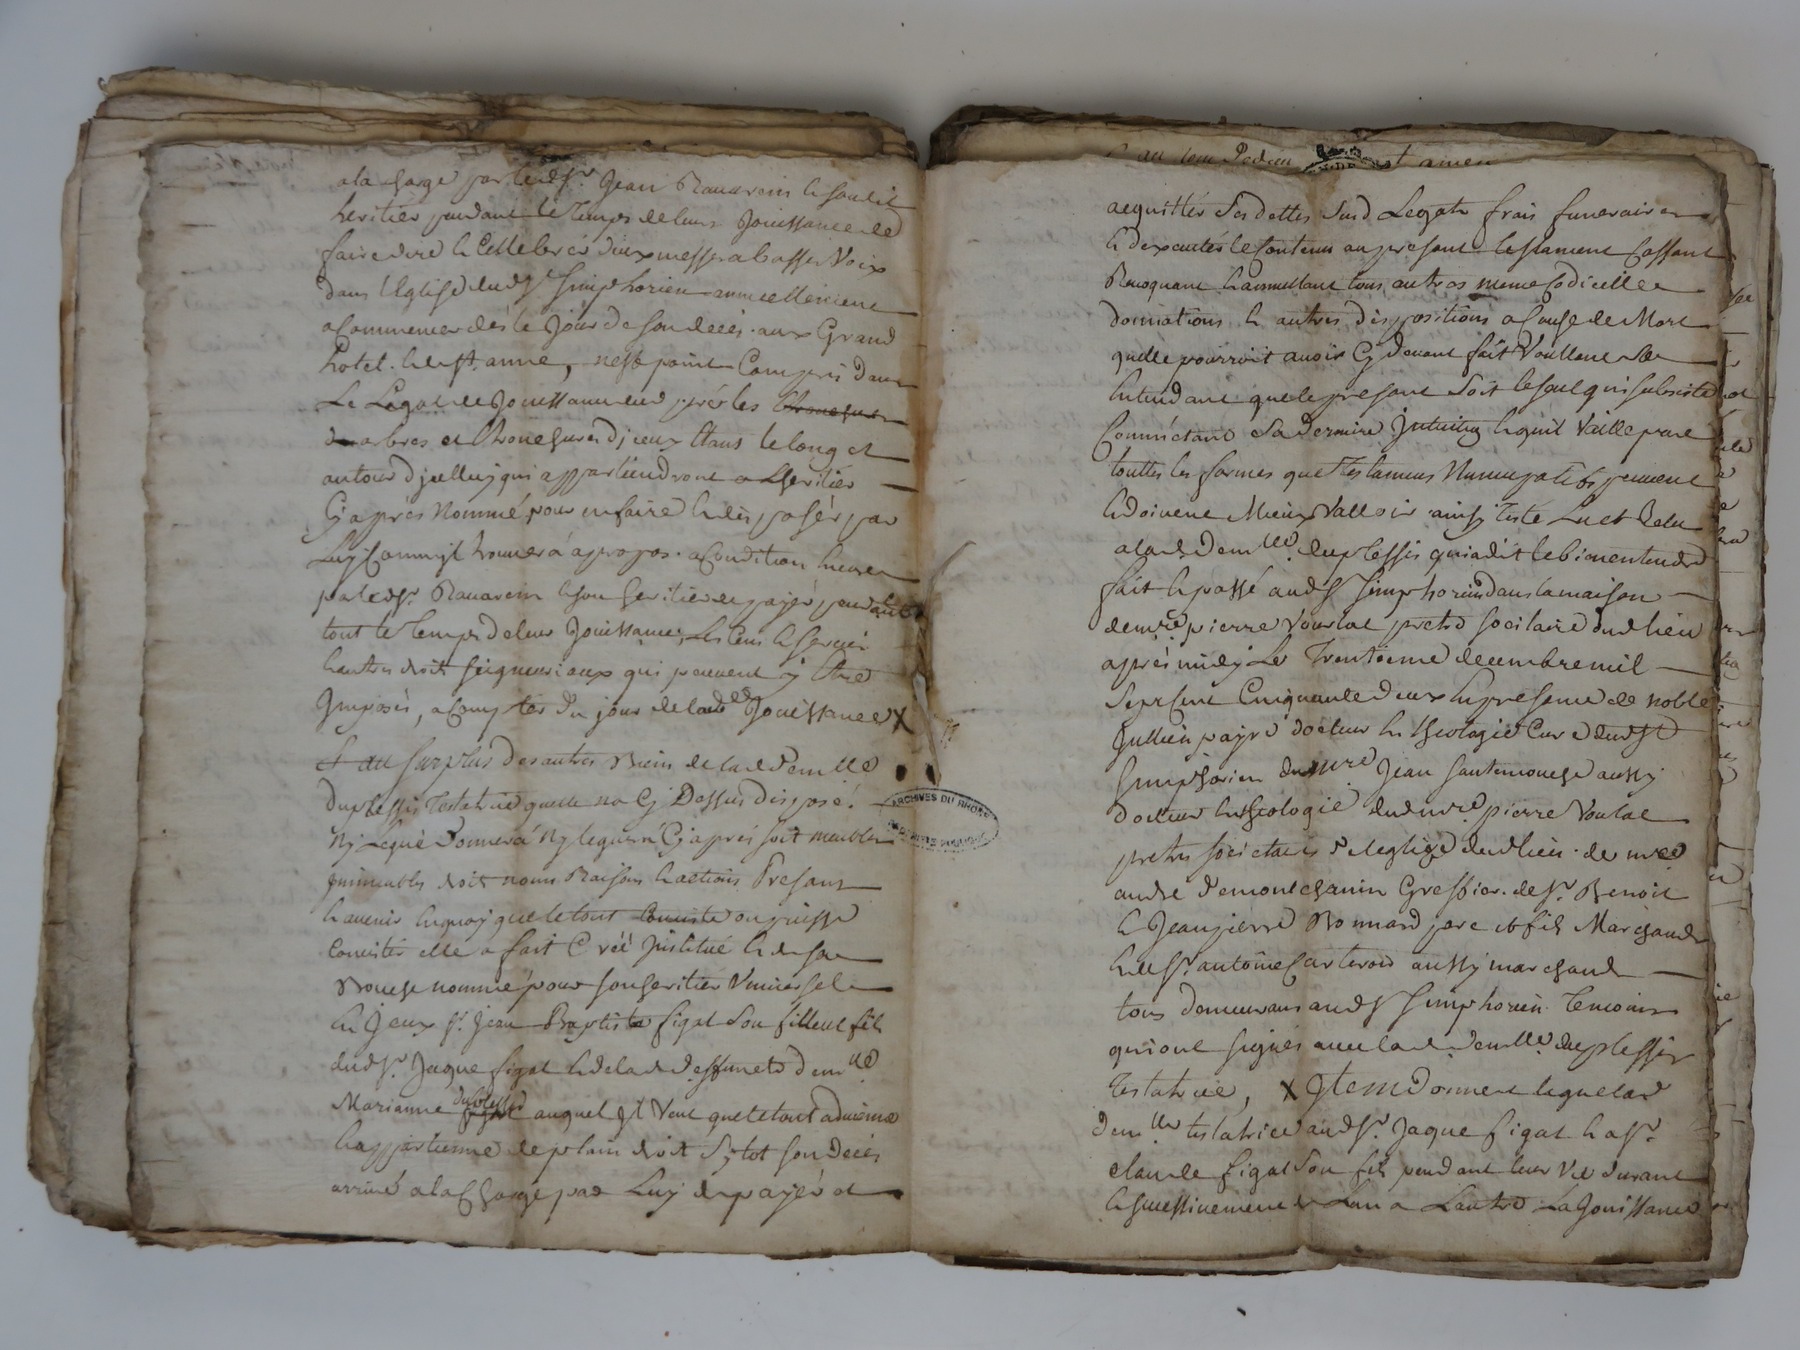 a la charge par ledt Sr. Jean Ravarein et sondit
heritier pendant le temps de leur Jouissance de
faire dire et Cellebrer deux messes a basse Voix
dans l'Eglise dud St Simphorien annuellement
a Commencer dès le Jour de son decès aux Grand
hotel et de Ste anne, n'est point Compris dans
Le Legat de Jouissance dud prés les
d'arbres et d'iceux Etans le long et
autour d'jcelluy qui appartiendront a Lheritier
Cy après Nommé pour en faire et disposér par
Luy Comm'jl trouvera apropos a Condition
par led Sr. Ravarein et son heritier de payér pendant
tout le temps de leur Jouissance, les Cens et servis
et autres droit seigneuriaux qui peuvent y être
Jmposés, a Compter du jour de lade Jouissance X
Et au surplus des autres Biens de lad demlle
duplessis Testatrice quelle na Cy Dessus disposé
Ny Legué donnera Ny leguera Cy après soit meubles
jmmeubles droit noms Raisons et actions Presans
et avenir en quoy que le tout Consiste ou puisse
Consister elle a fait Créé Justitué et de sa
Bouche nommé pour son heritier Universel
Sr. Jean Baptiste figat son filleul fils
dud Sr. Jaque figat et de lad deffuncte demlle
Marianne duplessis auquel Jl Veut que le tout advienne
et appartienne de plain droit Sy tot son Decès
arrivé a la Charge par Luy de payér et
amen
acquitter Ses dettes Susd Legats frais funeraires
et d'executér le Contenu au present testament Cassant
Revoquant et annullant tous autres meme Codicilles
donnations et autres dispositions a Cause de Mort
quelle pourroit avoir Cy devant fait Voullant
Entendant que le present Soit le seul qui subsiste
Contenant Sa derniere Intention et quil Vaille par
touttes les formes que Testamens Nuncupatifs peuvent
et doivent Mieux Valloir ainsy Testé Lu et Relu
a lad. Demlle duplessis qui a dit le bien entendre
fait et passé aud St Simphorien dans la maison
de mre pierre Voulat pretre socitaire dud lieu
après midy Le Trentieme decembre mil
Sept Cent Cinquante deux En presence de noble
Jullien payre docteur En theologie Curé dud St
Simphorien de mre Jean aussy
docteur En theologie dud mre. pierre Voulat
pretres societaires de leglize dud lieu de mre
andre demontchanin Greffier de Sr. Benoit
et Jean pierre Bonnard pere et fils Marchands
et de Sr. antoine Carteron aussy marchand
tous demeurans aud St Simphorien Temoins
qui ont signés avec lad. demlle. duplessis
Testatrice, X Jtem donne et legue lad
demlle testatrice aud Sr. Jaque figat et a Sr.
claude figat Son fils pendant leur Vie durant
et successivement Lun a Lautre La Jouissance
ARCHIVES DU RHONE